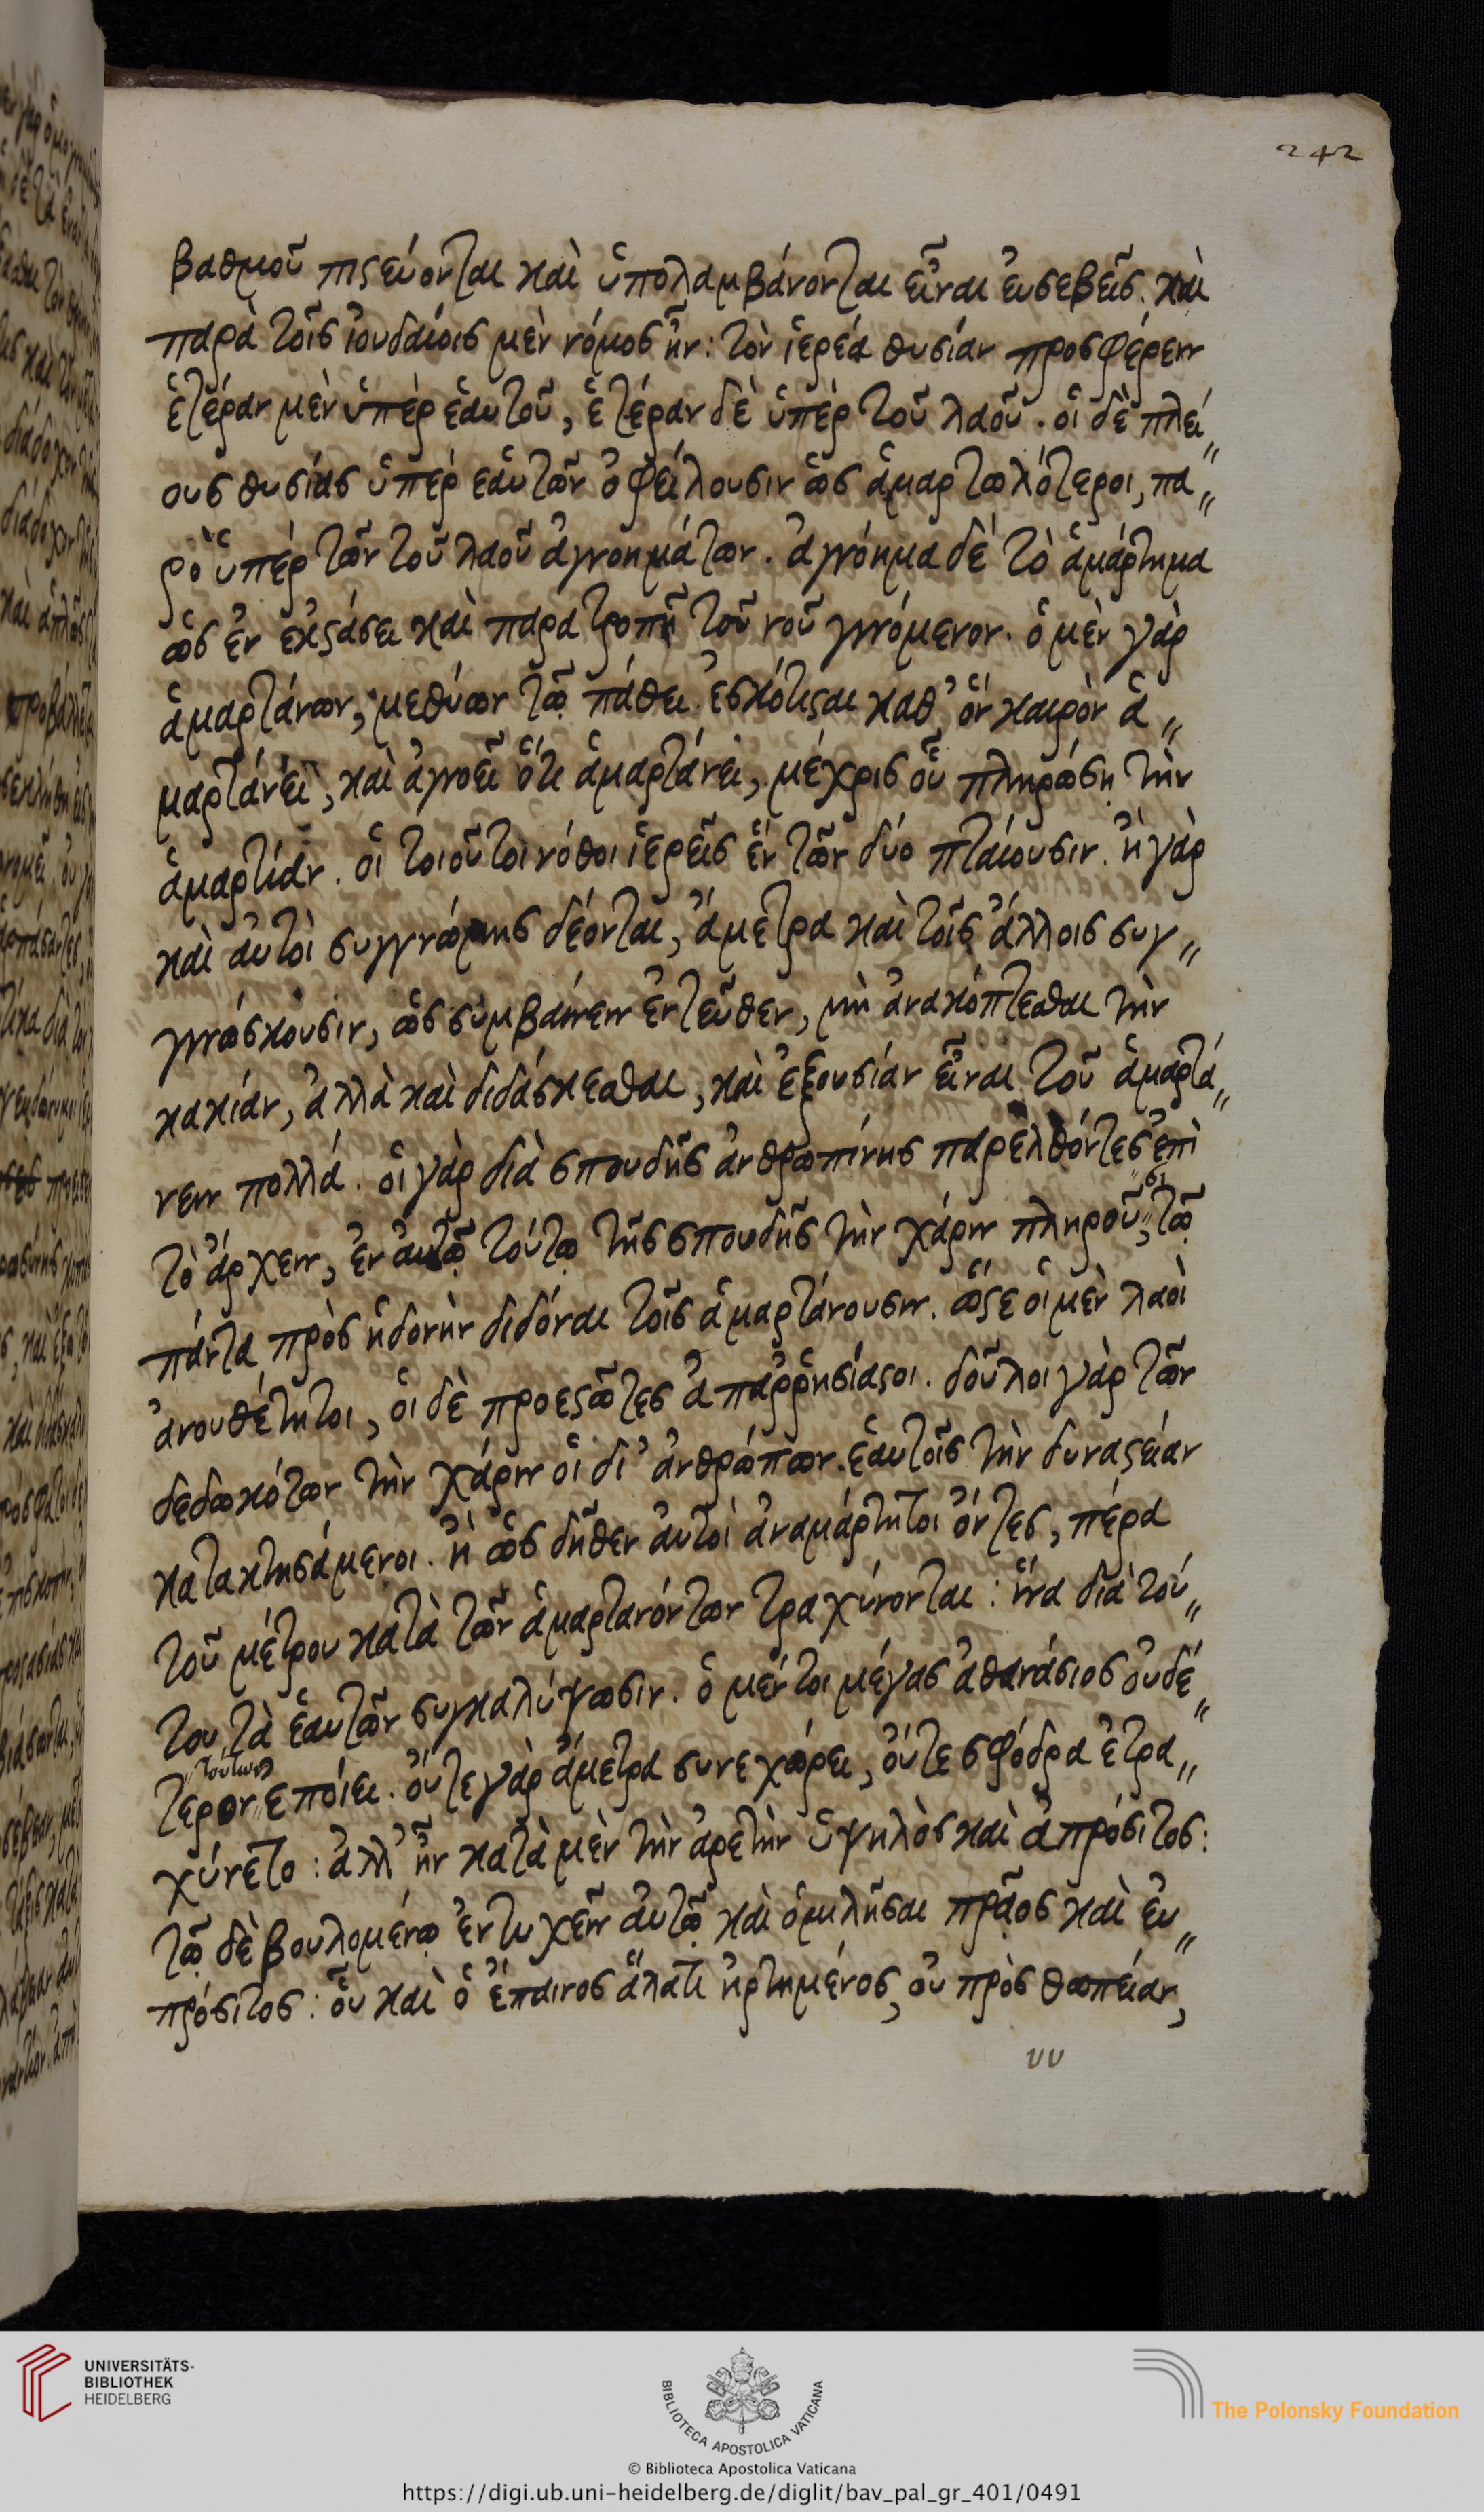 242
βαθμοῦ πιστεύονται καὶ ὑπολαμβάνονται εἶναι εὐσεβεῖς. καὶ
παρὰ τοῖς ἰουδαίοις μὲν νόμος ἦν: τὸν ἱερέα θυσίαν προσφέρειν
ἑτέραν μὲν ὑπὲρ ἑαυτοῦ, ἑτέραν δὲ ὑπὲρ τοῦ λαοῦ. οἱ δὲ πλεί„
ους θυσίας ὑπὲρ ἑαυτῶν ὀφείλουσιν ὡς ἁμαρτωλότεροι, πα„
ρὸ ὑπὲρ τῶν τοῦ λαοῦ ἀγνοημάτων. ἀγνόημα δὲ τὸ ἁμάρτημα
ὡς ἐν ἐκστάσει καὶ παρατροπῇ τοῦ νοῦ γινόμενον. ὁ μὲν γὰρ
ἁμαρτάνων, μεθύων τῷ πάθει ἐσκότισται καθ' ὃν καιρὸν ἁ„
μαρτάνει, καὶ ἀγνοεῖ ὅτι ἁμαρτάνει, μέχρις οὗ πληρώσῃ τὴν
ἁμαρτίαν. οἱ τοιοῦτοι νόθοι ἱερεῖς ἓν τῶν δύο πταίουσιν. ἢ γὰρ
καὶ αὐτοὶ συγγνώμης δέονται, ἄμετρα καὶ τοῖς ἄλλοις συγ„
γινώσκουσιν, ὡς συμβαίνειν ἐντεῦθεν, μὴ ἀνακόπτεσθαι τὴν
κακίαν, ἀλλὰ καὶ διδάσκεσθαι, καὶ ἐξουσίαν εἶναι τοῦ ἁμαρτά„
νειν πολλά. οἱ γὰρ διὰ σπουδῆς ἀνθρωπίνης παρελθόντες ἐπὶ
τὸ ἄρχειν, ἐν αὐτῷ τούτῳ τῆς σπουδῆς τὴν χάριν πληροῦσι, τῷ
πάντα πρὸς ἡδονὴν διδόναι τοῖς ἁμαρτάνουσιν. ὥστε οἱ μὲν λαοὶ
ἀνουθέτητοι, οἱ δὲ προεστῶτες ἀπαῤῥησίαστοι. δοῦλοι γὰρ τῶν
δεδωκότων τὴν χάριν οἱ δι' ἀνθρώπων ἑαυτοῖς τὴν δυναστείαν
κατακτησάμενοι. ἢ ὡς δῆθεν αὐτοὶ ἀναμάρτητοι ὄντες, πέρα
τοῦ μέτρου κατὰ τῶν ἁμαρτανόντων τραχύνονται: ἵνα διὰ τού„
του τὰ ἑαυτῶν συγκαλύψωσιν. ὁ μέντοι μέγας ἀθανάσιος οὐδέ„
τερον τούτων ἐποίει. οὔτε γὰρ ἄμετρα συνεχώρει, οὔτε σφόδρα ἐτρα„
χύνετο: ἀλλ' ἦν κατὰ μὲν τὴν ἀρετὴν ὑψηλὸς καὶ ἀπρόσιτος:
τῷ δὲ βουλομένῳ ἐντυχεῖν αὐτῷ καὶ ὁμιλῆσαι πρᾷος καὶ εὐ„
πρόσιτος: οὗ καὶ ὁ ἔπαινος ἅλατι ἠρτημένος, οὐ πρὸς θωπείαν,
υυ
UNIVERSITÄTS-
BIBLIOTHEK
HEIDELBERG
BIBLIOTECA APOSTOLICA VATICANA
The Polonsky Foundation
© Biblioteca Apostolica Vaticana
https://digi.ub.uni-heidelberg.de/diglit/bav_pal_gr_401/0491